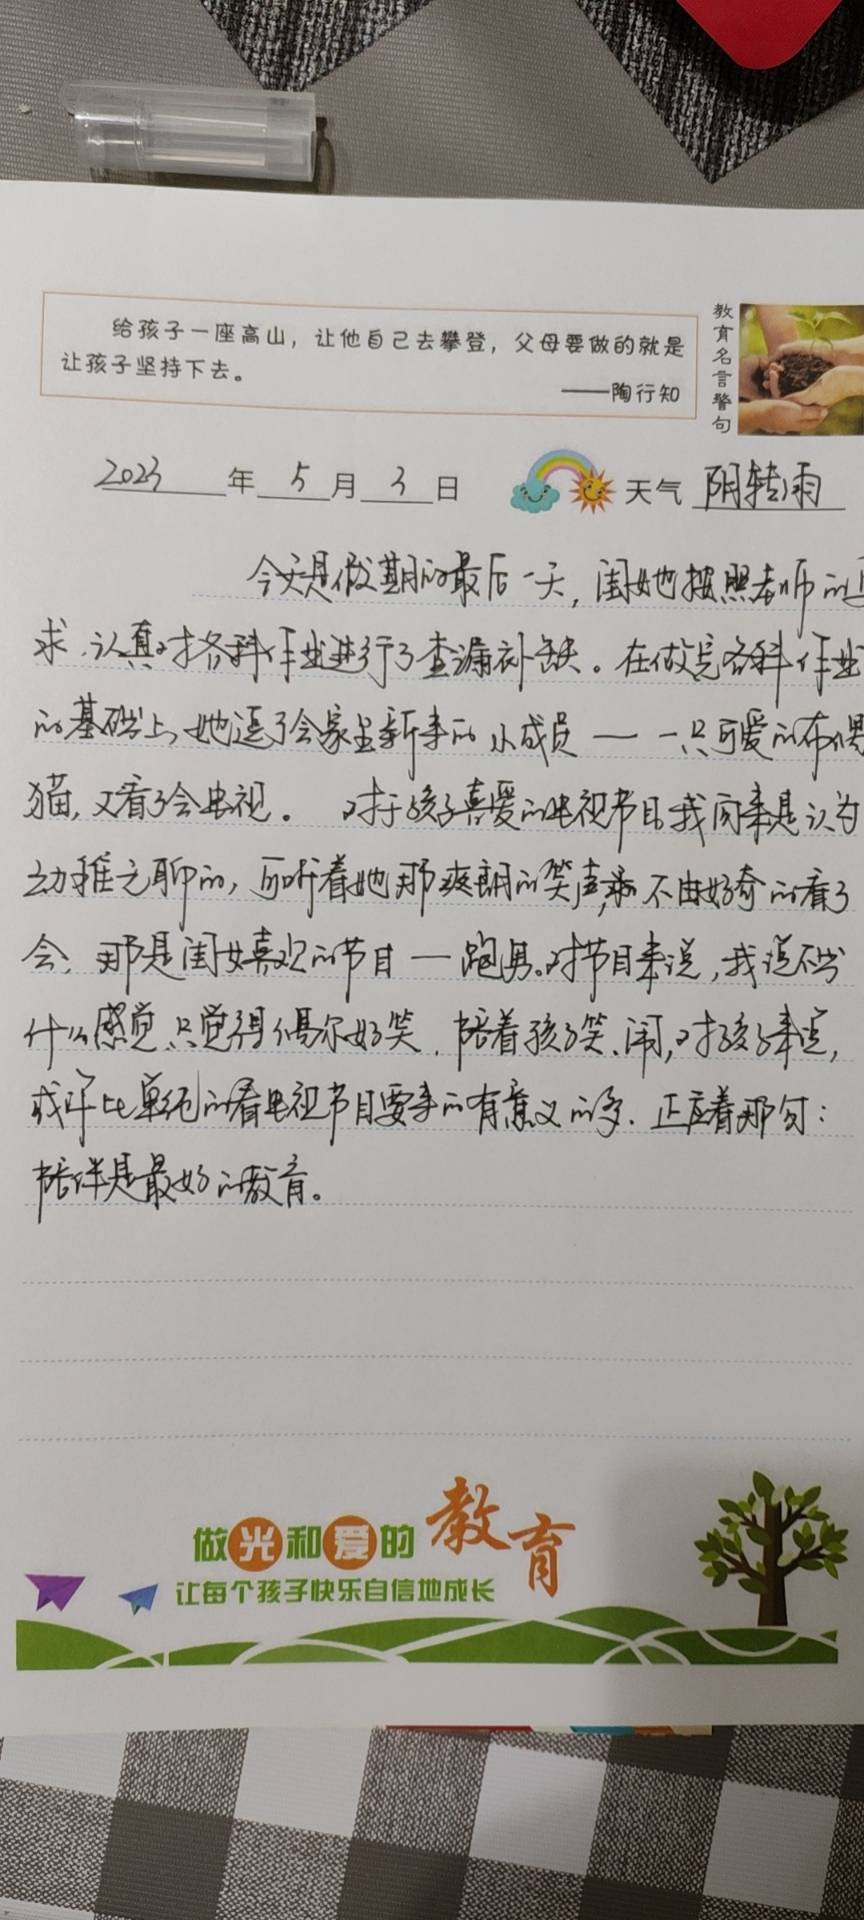 给孩子一座高山，让他自己去攀登，父母要做的就是
让孩子坚持下去。
——陶行知
教育名言警句
2023年5月3日 天气 阴转雨
今天是假期的最后一天，闺女她按照老师的
求，认真对各科作业进行了查漏补缺。在做完各科作业
的基础上，她逗了会家里新来的小成员——一只可爱的布偶
猫，又看了会电视。对于孩子喜爱的电视节目我向来是认为
幼稚无聊的，可听着她那爽朗的笑声，不由好奇的看了
会，那是闺女喜欢的节目——跑男。对节目来说，我说不出
什么感觉，只觉得偶尔好笑，陪着孩子笑、闹，对孩子来说，
或许比单纯的看电视节目要来的有意义的多。正应着那句：
陪伴是最好的教育。
做光和爱的教育
让每个孩子快乐自信地成长